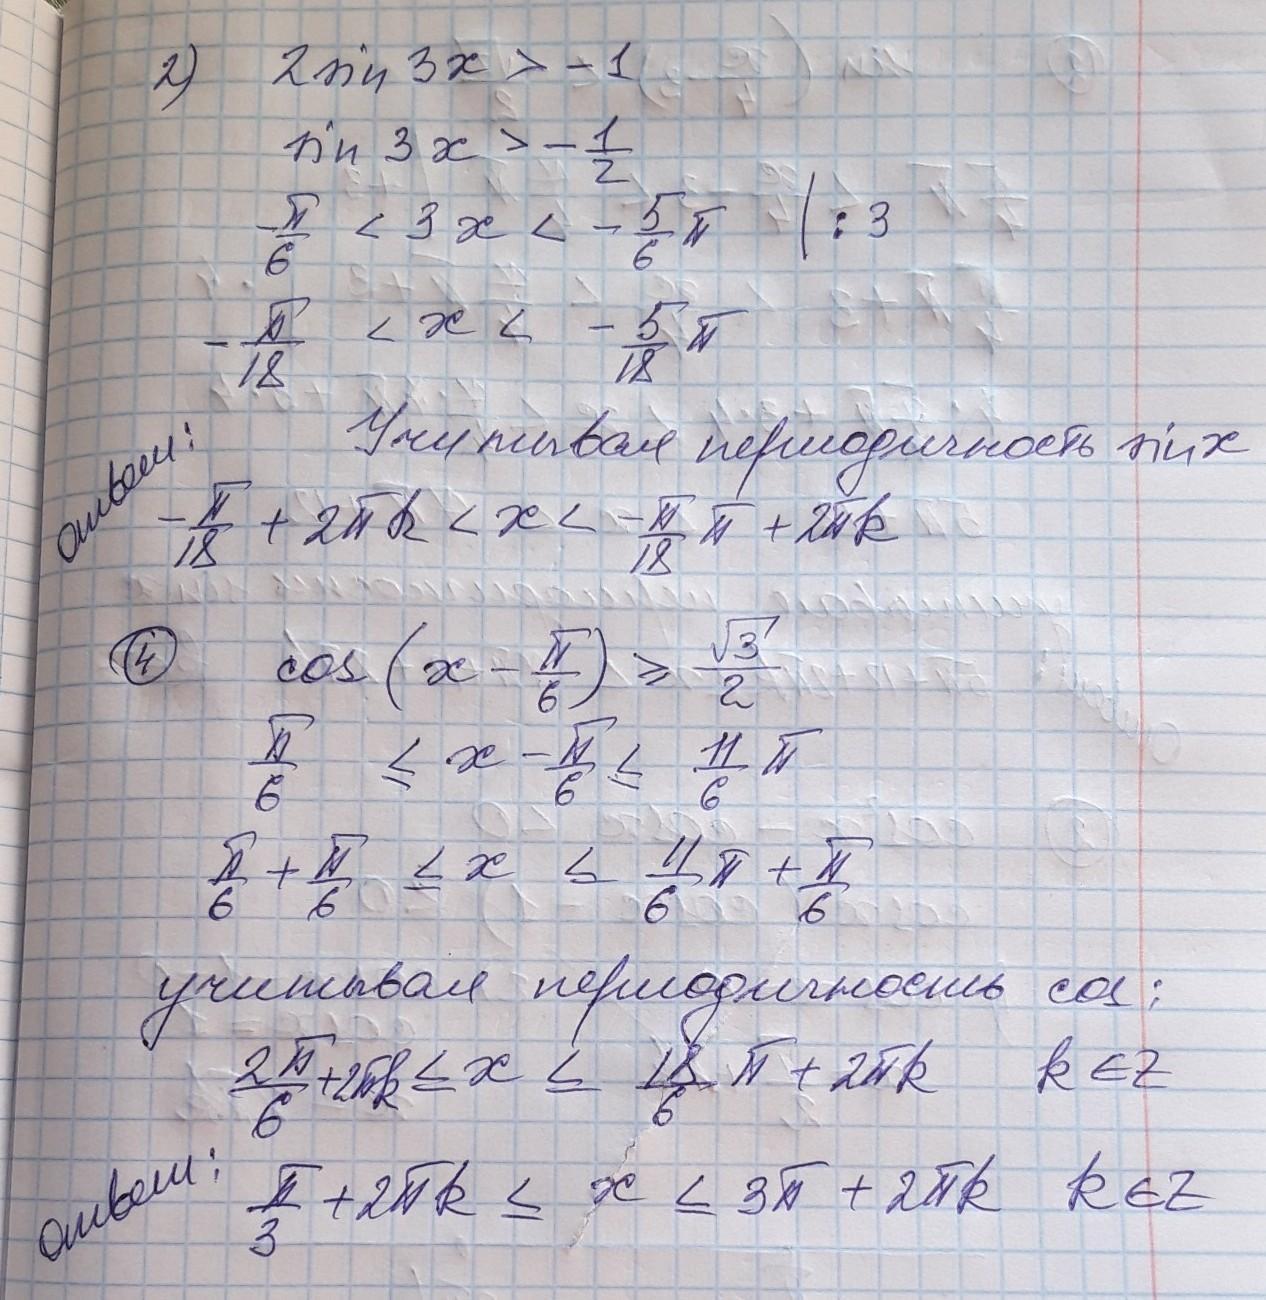 2) 2 sin 3x > -1
sin 3x > - 1/2
-π/6 < 3x < - 5/6 π | : 3
- π/18 < x < - 5/18 π
Учитывая периодичность sin x
Ответ:
- π/18 + 2πk < x < - π/18 π + 2πk
④ cos (x - π/6) ≥ √3/2
π/6 ≤ x - π/6 ≤ 11/6 π
π/6 + π/6 ≤ x ≤ 11/6 π + π/6
учитывая периодичность cos:
2π/6 + 2πk ≤ x ≤ 18/6 π + 2πk k ∈ Z
Ответ: π/3 + 2πk ≤ x ≤ 3π + 2πk k ∈ Z